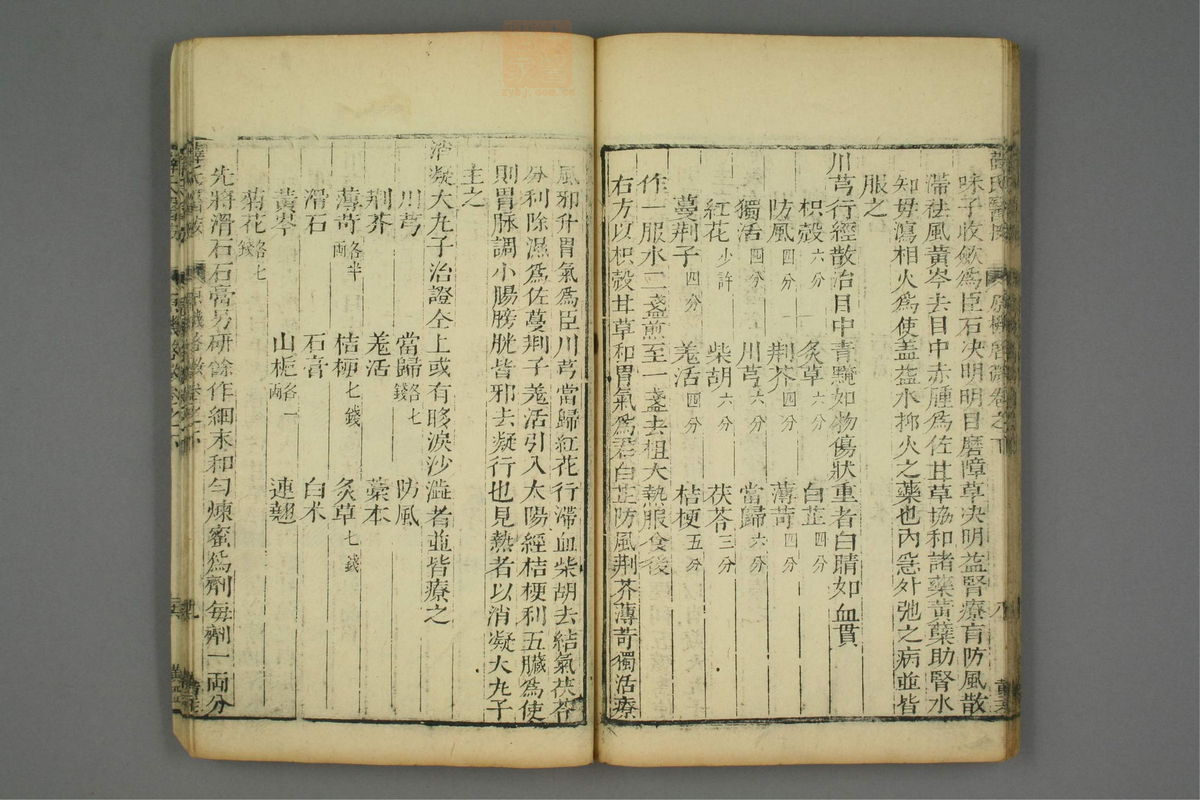 味子收歛爲臣石决明明目磨障草决明益腎療盲防風散
滯袪風黃芩去目中赤腫爲佐甘草協和諸藥黃蘗助腎水
知母瀉相火爲使盖益水抑火之藥也內急外弛之病並皆
服之
川芎行經散治目中青黵如物傷狀重者白睛如血貫
枳殼六分 炙草六分 白芷四分
防風四分 荆芥四分 薄苛四分
獨活四分 川芎六分 當歸六分
紅花少許 柴胡六分 茯苓三分
蔓荆子四分 羗活四分 桔梗五分
作一服水二盞煎至一盞去柤大熱服食後
右方以枳殼甘草和胃氣爲君白芷防風荆芥薄苛獨活療
風邪升胃氣爲臣川芎當歸紅花行滯血柴胡去結氣茯苓
分利除濕爲佐蔓荆子羗活引入太陽經桔梗利五臟爲使
則胃脉調小腸膀胱皆邪去凝行也見熱者以消凝大丸子
主之
消凝大丸子治證仝上或有眵淚沙澁者並皆療之
川芎 當歸各七錢 防風
荆芥 羗活 藁本
薄苛各半両 桔梗七錢 炙草七錢
滑石 石膏 白术
黃芩 山梔各一両 連翹
菊花各七錢
先將滑石石膏另研餘作細末和勻煉蜜爲劑每劑一両分